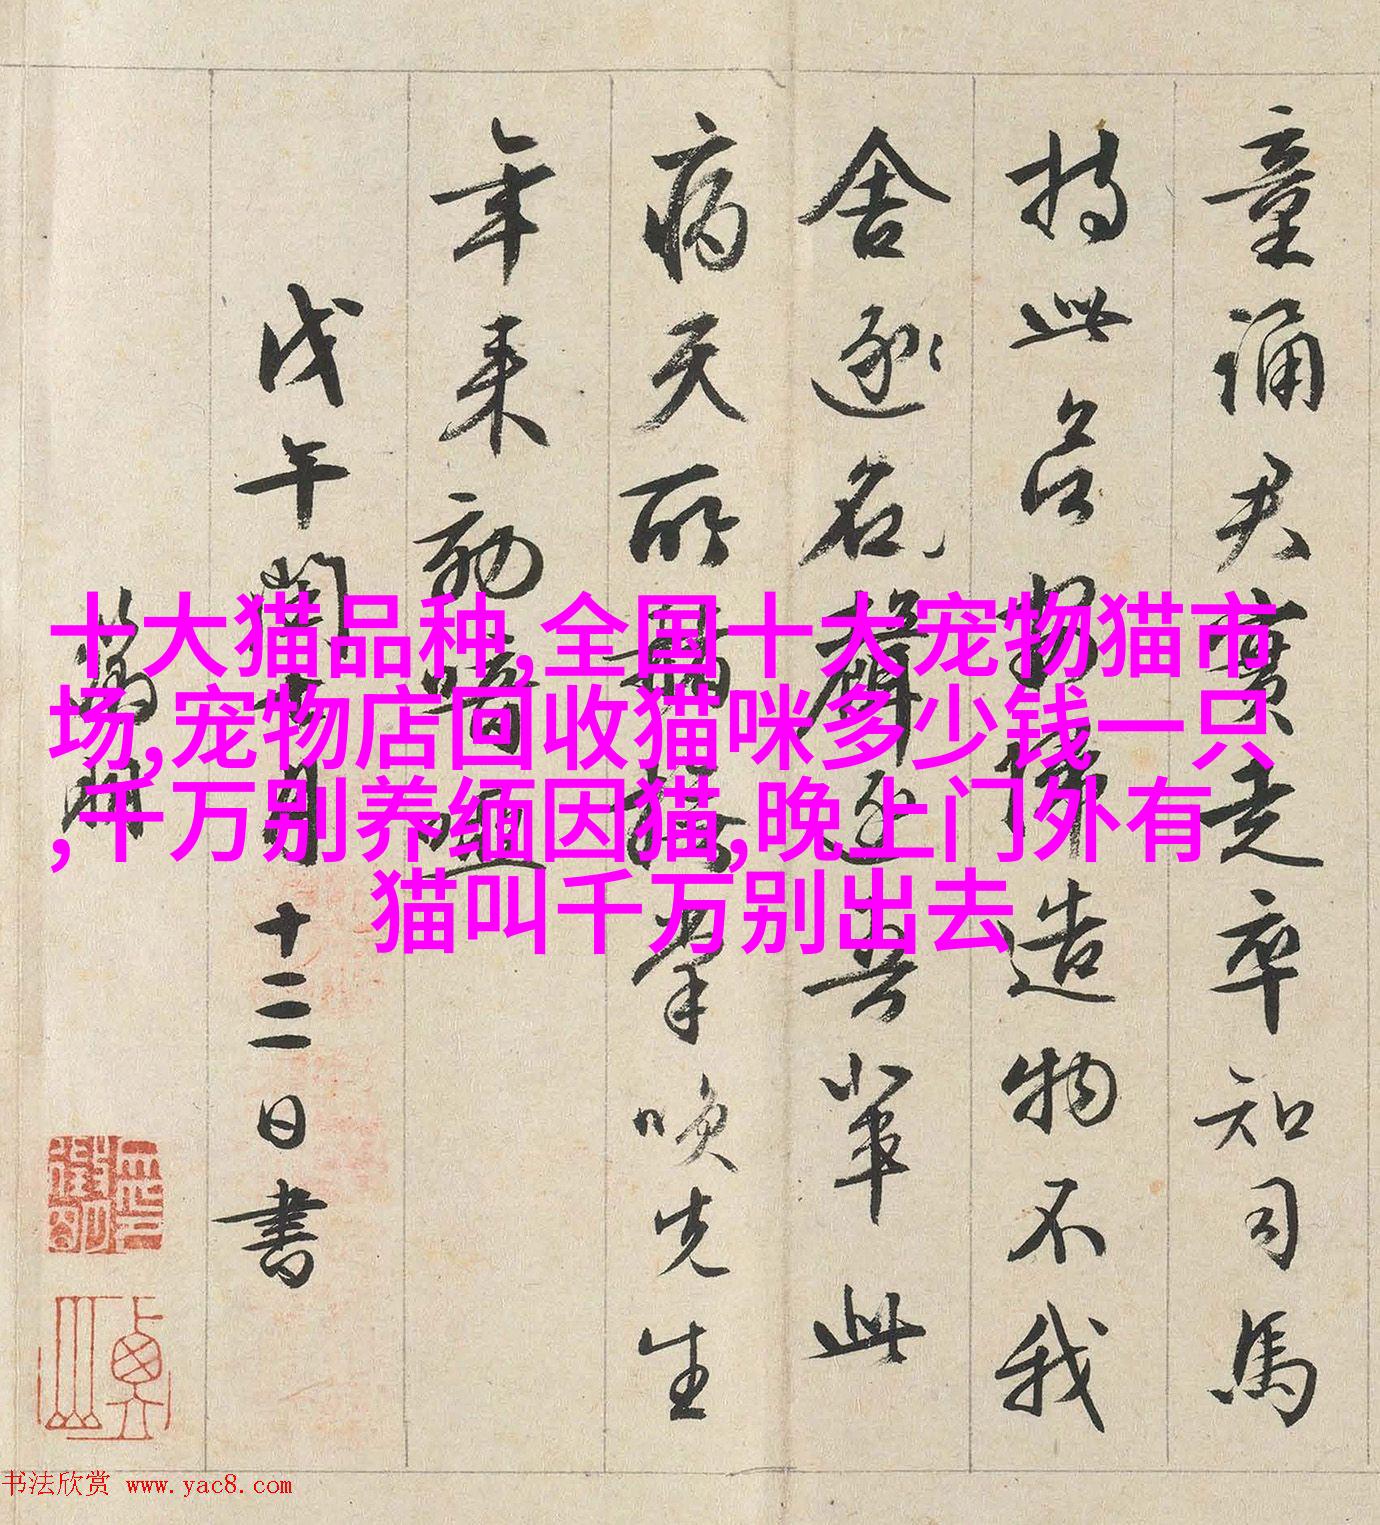 童誦君實走卒知司馬
持此造物不我
舍逐名聲逐吾輩此
病天所赭撫掌笑先生
年來効喑啞
戊午閏十月十二日書
十大猫品种,全国十大宠物猫市
场,宠物店回收猫咪多少钱一只
,千万别养缅因猫,晚上门外有
猫叫千万别出去
书法欣赏 www.yac8.com